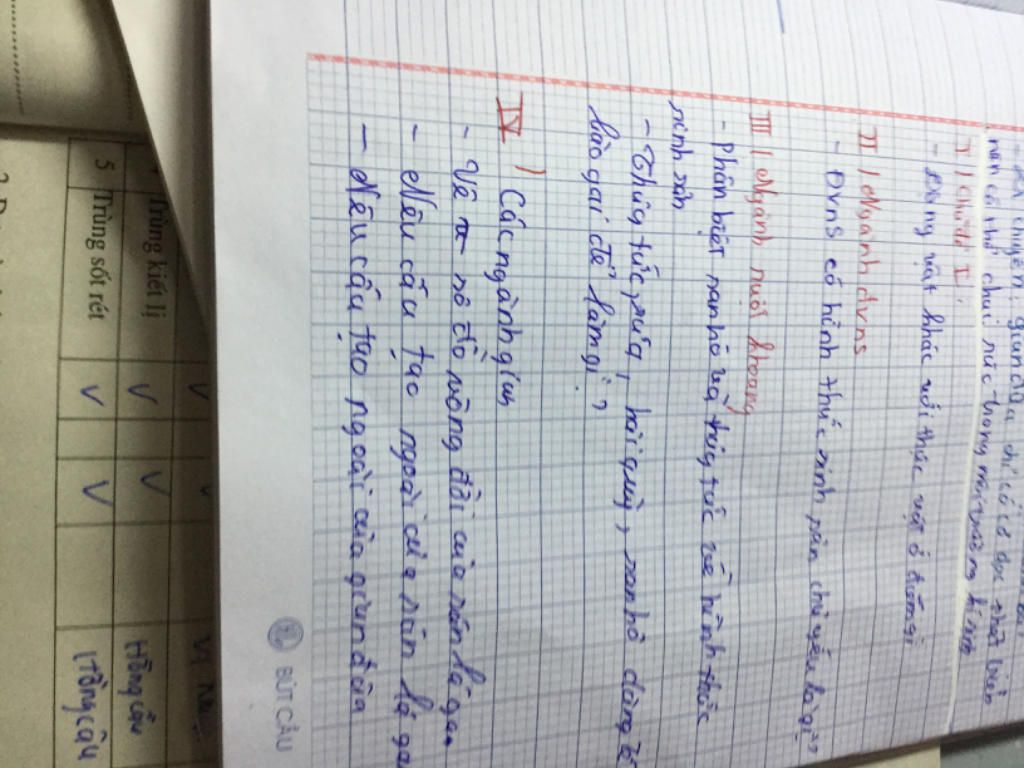 nên có thể chui rúc trong môi trường kí sinh
I / Chủ đề I :
- Động vật khác với thực vật ở điểm gì
II / Ngành đvns
- ĐVNS có hình thức sinh sản chủ yếu là gì?
III / Ngành ruột khoang
- Phân biệt san hô và thủy tức về hình thức
sinh sản
- Thủy tức, sứa, hải quỳ, san hô dùng tế
bào gai để làm gì?
IV / Các ngành giun
- Vẽ sơ đồ vòng đời của sán lá gan
- Nêu cấu tạo ngoài của sán lá ga
- Nêu cấu tạo ngoài của giun đũa
BÚT CẦU
Trùng kiết lị V V Hồng cầu
5 Trùng sốt rét V V Hồng cầu